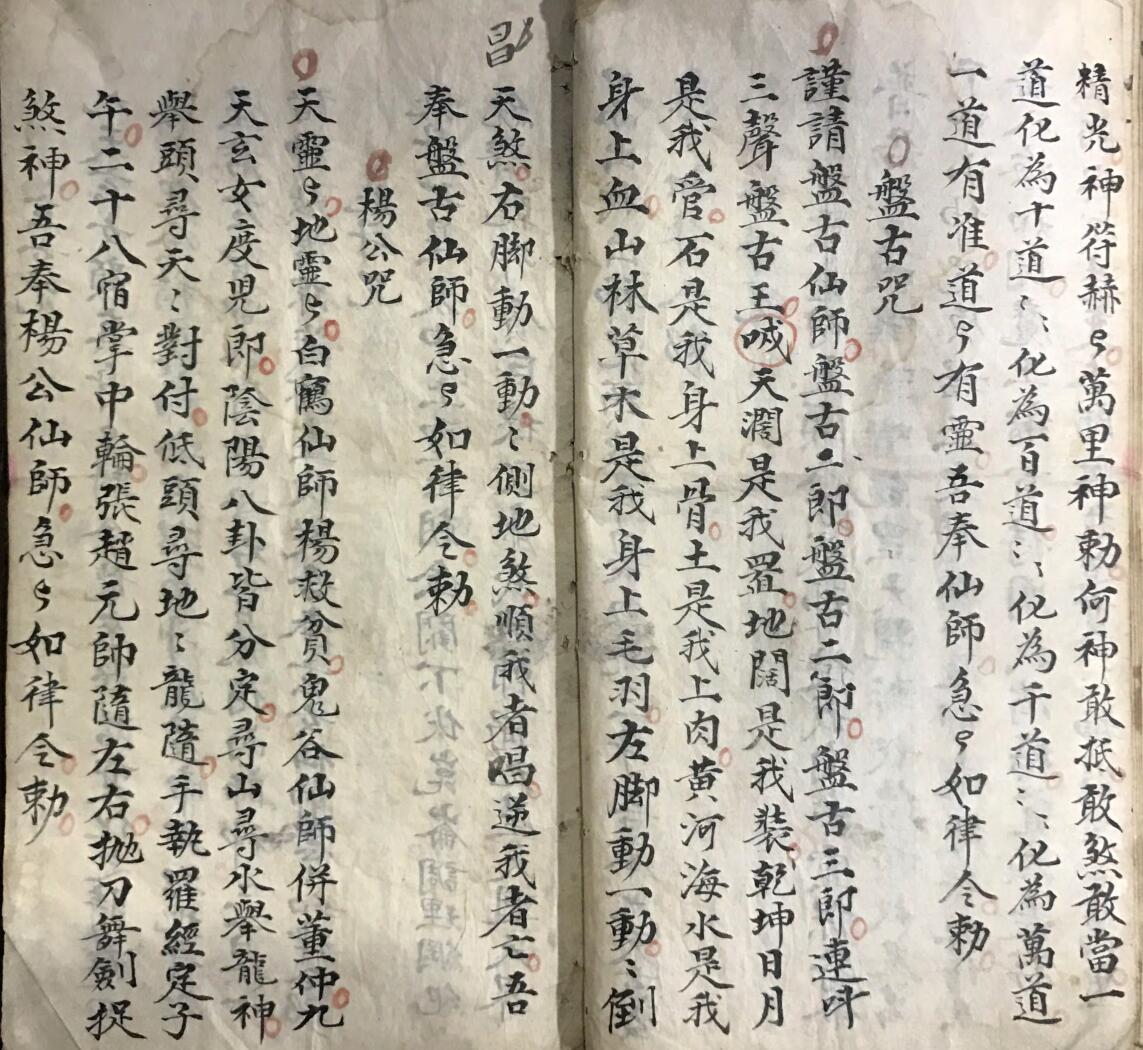 精光神符赫々萬里神勅何神敢抵敢煞敢當一
道化為十道〻化為百道〻化為千道〻化為萬道
一道有准道々有靈吾奉仙師急々如律令勅
盤古咒
謹請盤古仙師盤古二郎盤古二郎盤古三郎連叫
三聲盤古王喊天濶是我置地闊是我裝乾坤日月
是我管石是我身上骨土是我上肉黄河海水是我
身上血山林草木是我身上毛羽左脚動一動〻倒
天煞右脚動一動〻側地煞順我者唱逆我者亡吾
昌
奉盤古仙師急々如律令勅
楊公咒
天靈々地靈々白鶴仙師楊救貧鬼谷仙師併董仲九
天玄女度児郎陰陽八卦皆分定尋山尋水舉龍神
舉頭尋天〻對付低頭尋地〻龍隨手執羅經定子
午二十八宿掌中輪張趙元帥隨左右抛刀舞劍捉
煞神吾奉楊公仙師急々如律令勅